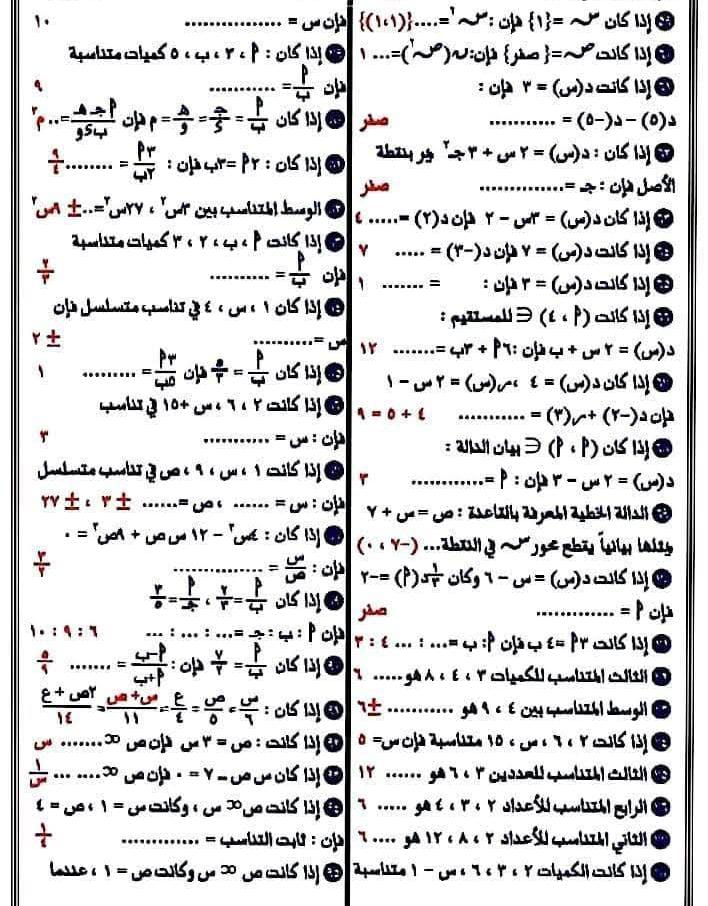 إذا كان س = {١} فإن : س٢ = ....{(١،١)}
إذا كانت ص = { صفر} فإن: ن(ص٢) = ... ١
إذا كانت د(س) = ٣ فإن :
د(٥) - د(-٥) = ........... صفر
إذا كان : د(س) = ٢س + ٣جـ٢ يمر بنقطة
الأصل فإن : جـ = ............ صفر
إذا كان د(س) = ٣س - ٢ فإن د(٢) = ..... ٤
إذا كانت د(س) = ٧ فإن د(-٣) = ..... ٧
إذا كانت د(س) = ٣ فإن : = ....... ١
إذا كانت (٤ ، أ) ∈ للمستقيم :
د(س) = ٢س + ب فإن :٦أ + ٣ب = ....... ١٢
إذا كان د(س) = ٤ ، ر(س) = ٢س - ١
فإن د(-٢) + ر(٣) = ........... ٤ + ٥ = ٩
إذا كان (أ ، أ) ∈ بيان الدالة :
د(س) = ٢س - ٣ فإن : أ = ............ ٣
الدالة الخطية المعرفة بالقاعدة : ص = س + ٧
يمثلها بيانياً يقطع محور س في النقطة... (-٧ ، ٠)
إذا كانت د(س) = س - ٦ وكان ١/٣ د(أ) = -٢
فإن أ = ............. صفر
إذا كانت ٣أ = ٤ب فإن أ: ب = ... : ... ٤ : ٣
الثالث المتناسب للكميات ٣ ، ٤ ، ٨ هو..... ٦
الوسط المتناسب بين ٤ ، ٩ هو ........... ±٦
إذا كانت ٢ ، ٦ ، س ، ١٥ متناسبة فإن س= ٥
الثالث المتناسب للعددين ٣ ، ٦ هو ...... ١٢
الرابع المتناسب للأعداد ٢ ، ٣ ، ٤ هو ..... ٦
الثاني المتناسب للأعداد ٢ ، ٨ ، ١٢ هو .... ٦
إذا كانت الكميات ٢ ، ٣ ، ٦ ، س - ١ متناسبة
فإن س = ................ ١٠
إذا كان : أ ، ٣ ، ب ، ٥ كميات متناسبة
فإن أ/ب = ........... ٩
إذا كان أ/ب = جـ/د = هـ/و = م فإن أ جـ هـ/ب د و = .. م٣
إذا كان : ٢أ = ٣ب فإن : ٣أ/٢ب = ........ ٩/٤
الوسط المتناسب بين ٣س٢ ، ٢٧س٢ = .. ± ٩س٢
إذا كانت أ ، ب ، ٢ ، ٣ كميات متناسبة
فإن أ/ب = .......... ٢/٣
إذا كان ١ ، س ، ٤ في تناسب متسلسل فإن
س = .......... ± ٢
إذا كان أ/ب = ٥/٣ فإن ٣أ/٥ب = ......... ١
إذا كانت ٢ ، ٦ ، س + ١٥ في تناسب
فإن : س = ........... ٣
إذا كانت ١ ، س ، ٩ ، ص في تناسب متسلسل
فإن : س = ...... ، ص = ...... ± ٣ ، ± ٢٧
إذا كان : ٤س٢ - ١٢ س ص + ٩ص٢ = ٠
فإن : س/ص = ............... ٣/٢
إذا كان أ/ب = ٢/٣ ، أ/جـ = ٣/٥
فإن أ : ب : جـ = ... : ... : ... ٦ : ٩ : ١٠
إذا كان أ/ب = ٧/٢ فإن : أ-ب/أ+ب = ....... ٥/٩
إذا كان : س/٦ = ص/٥ = ع/٤ = س+ص/١١ = ٢ص + ع/١٤
إذا كانت : ص = ٣س فإن ص ∝ ........ س
إذا كان س ص - ٧ = ٠ فإن ص ∝ ........ ١/س
إذا كانت ص ∝ س ، وكانت س = ١ ، ص = ٤
فإن : ثابت التناسب = ............. ١/٤
إذا كانت ص ∝ س وكانت ص = ١ ، عندما